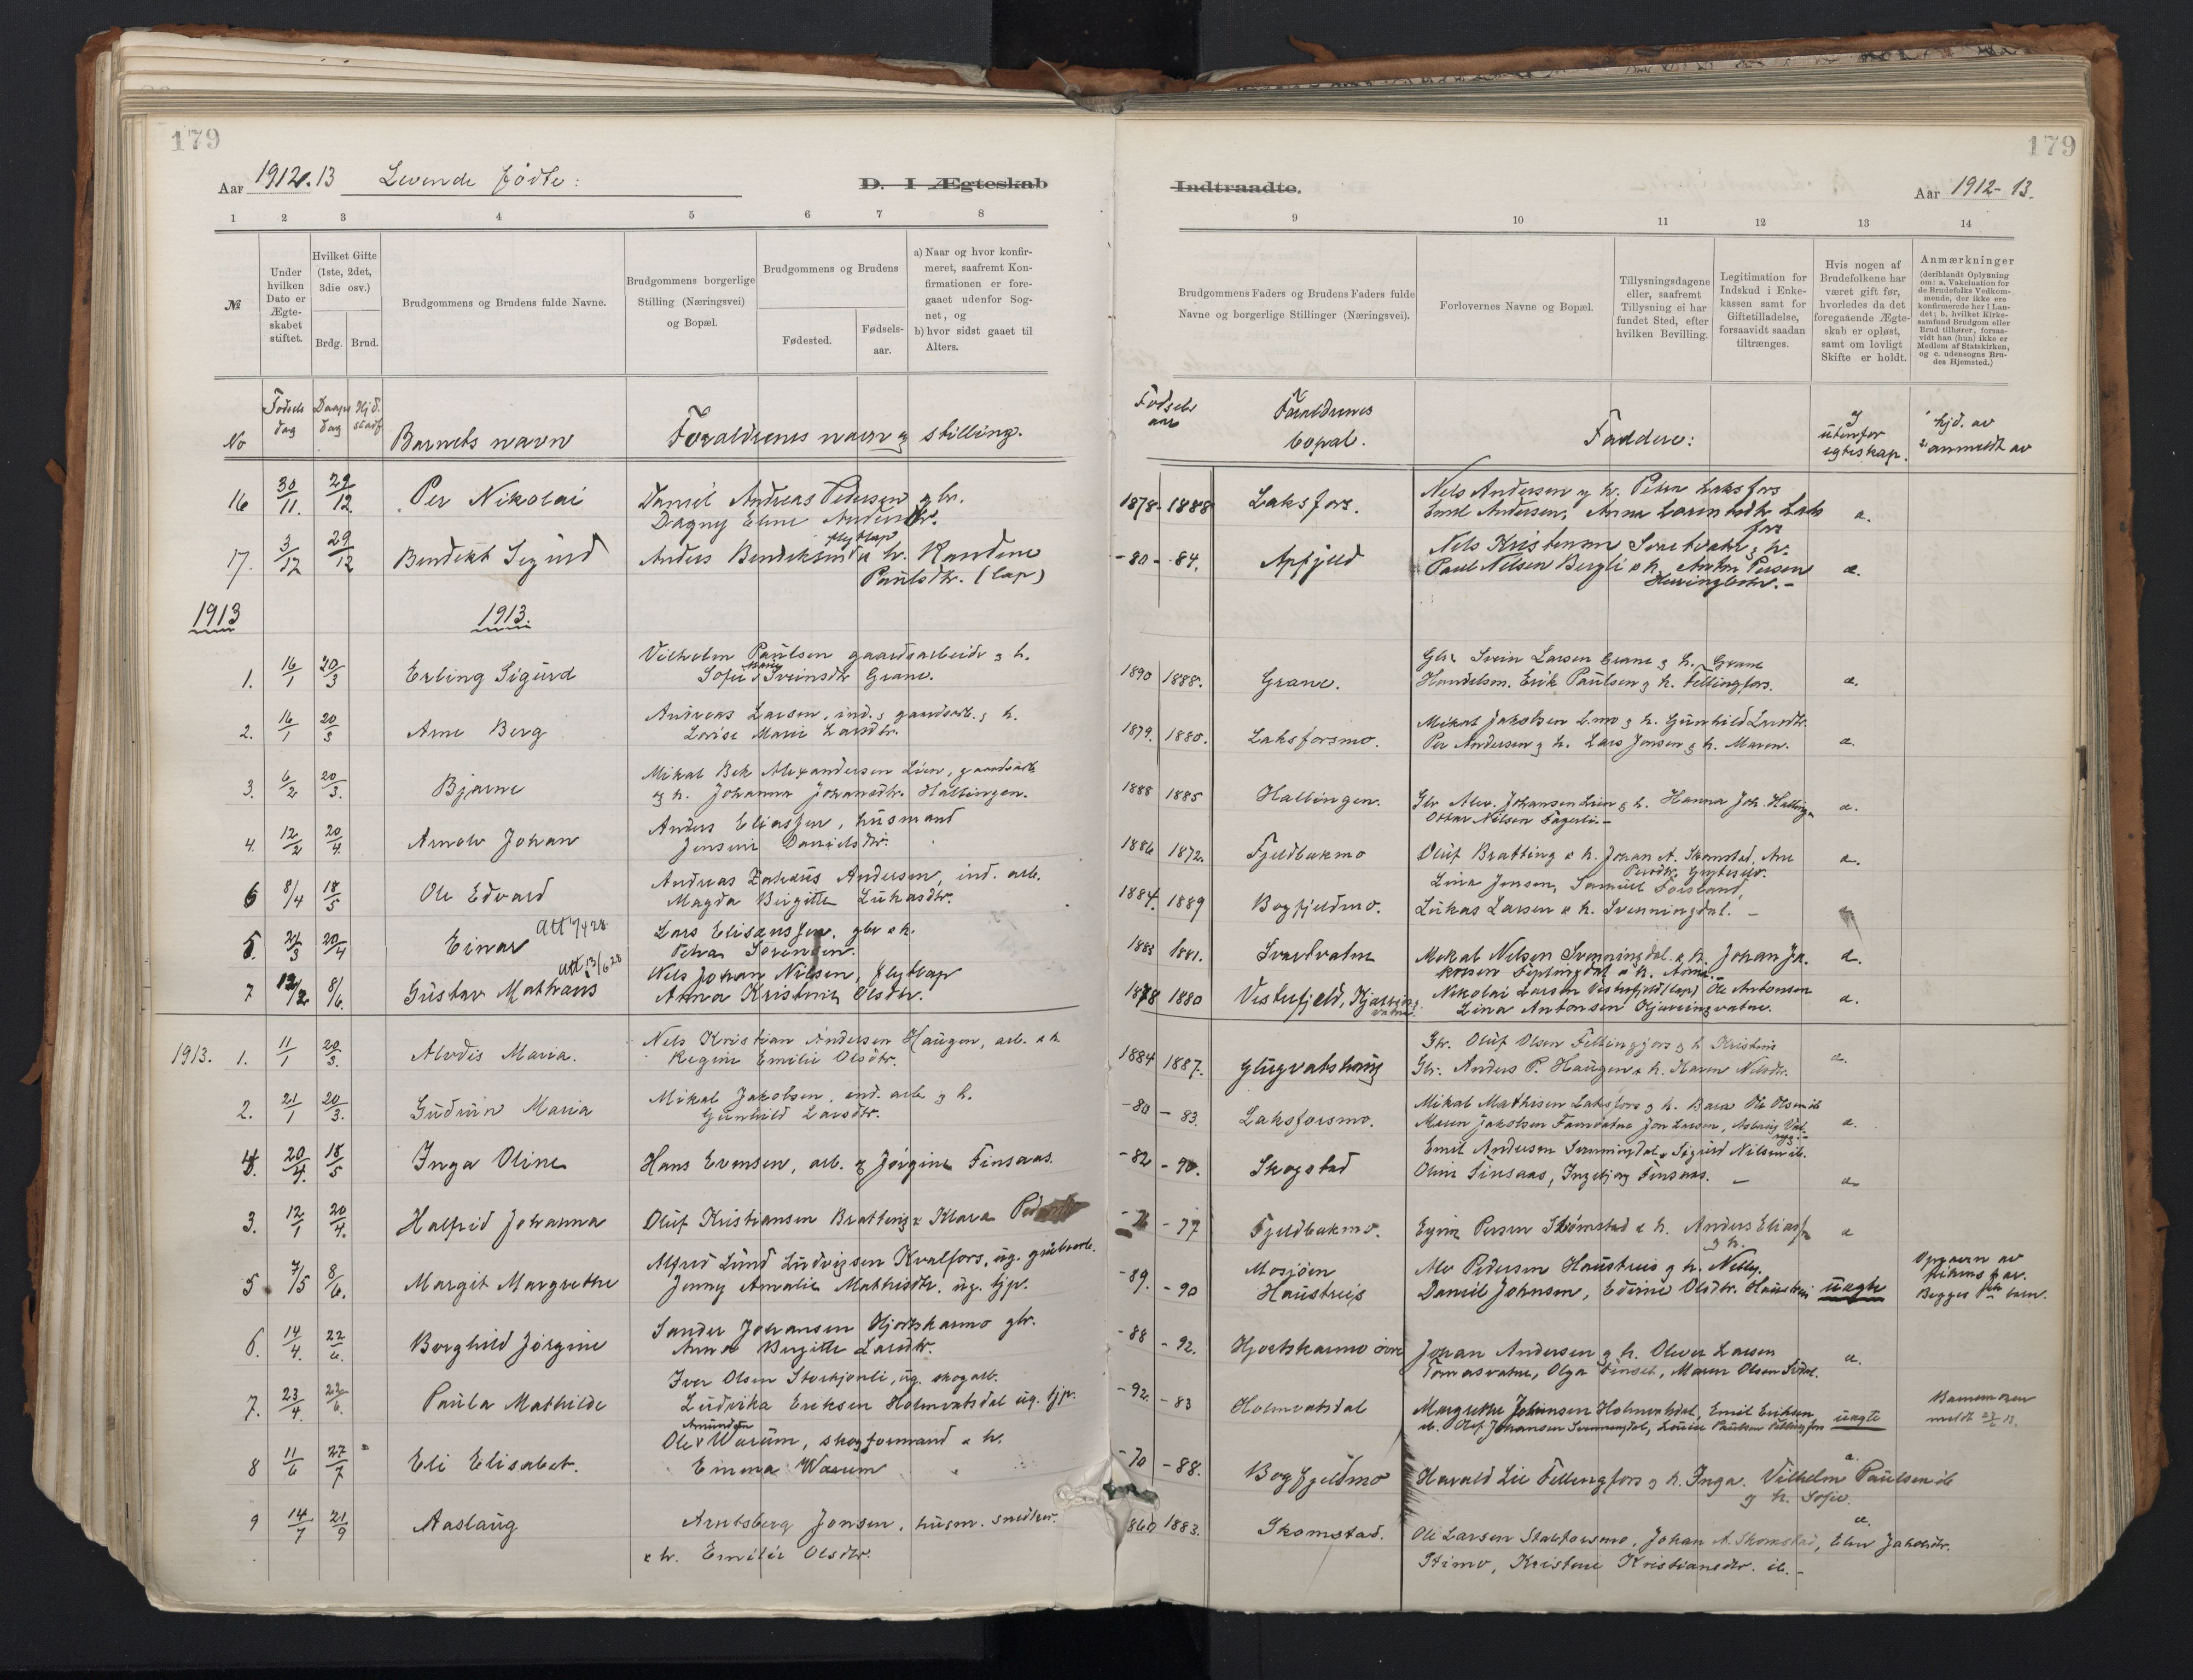 179
Aar 1912.13 Levende fødte:
D. I Ægteskab
1 2 3 4 5 6 7 8
№
Under hvilken Dato er Ægte- skabet stiftet.
Hvilket Gifte (1ste, 2det, 3die osv.)
Brdg. Brud.
Brudgommens og Brudens fulde Navne.
Brudgommens borgerlige Stilling (Næringsvei) og Bopæl.
Brudgommens og Brudens
Fødested.
Fødsels- aar.
a) Naar og hvor konfir- meret, saafremt Kon- firmationen er fore- gaaet udenfor Sog- net, og
b) hvor sidst gaaet til Alters.
No Fødsels dag Daaps dag Hjd. Barnets navn Forældrenes navn og stilling.
16 30/11. 29/12. Per Nikolai Daniel Andreas Pedersen g h.
Dagny Eline
17. 3/12 29/12 Bendikt Sigurd Anders Bendiksen h.
Paulsdtr. (Lap)
1913 1913.
Vilhelm Paulsen gaardsarbeider g h.
1. 16/1 20/3 Erling Sigurd Sofie Marie Sveinsdtr Grane.
Andreas Larsen, ind. g gaardsarb. g h.
2. 16/1 20/3 Arne Berg Lovise Marie Larsdtr.
Mikal Bek Alexandersen Lien, gaardsarb
3. 6/2 20/3. Bjarne og h. Johanna Johansdtr. Halbingen.
Anders Eliassen, husmand
4. 12/2 20/4. Arnolv Johan Jensine Danielsdtr.
Andreas Zakaris Andersen, ind. arb.
6 8/4 18/5 Ole Edvard Magda Birgitte Lukasdtr.
att 7/4 28
Lars Elisæussen. gbr & h.
5. 21/3 20/4 Einar Petra Sørensen.
att 13/6 28
Nils Johan Nilsen, flytlap
7 12/2 8/6. Gustav Mathæus Anna Kristine Olsdtr.
Nels Kristian Andersen Haugen, arb. & h
1913. 1. 11/1 20/3. Alvdis Maria. Regine Emilie Olsdtr.
Mikal Jakobsen, ind. arb g h.
2. 21/1 20/3. Gudrun Maria Gunhild Larsdtr.
4. 20/4. 18/5 Inga Oline Hans Evensen, arb. og Jørgine Finsaas.
3. 12/1 20/4. Halfrid Johanna Oluf Kristiansen Bratteng & Klara
Alfred Lund Ludvigsen Kvalfors, ug. grubearb.
5 7/5 8/6. Margit Margrethe Jenny Amalie Mathisdtr. ug. tjp.
Sander Johansen Hjortskarmo gbr.
6. 14/4. 22/6. Borghild Jørgine Anna Birgitte Larsdtr.
Iver Olsen Storkjønli, ug. skogarb.
7. 23/4. 22/6. Paula Mathilde Ludvika Eriksen Holmvatsdal ug. tjp.
Amundsen
Ole Warum, skogformand & h.
8 11/6 27/7 Eli Elisabet. Emma Warum
9 14/7 21/9 Aaslaug Arntsberg Jonsen, husm. snedker.
& h. Emilie Olsdtr.
179
Indtraadte.
Aar 1912-13.
9 10 11 12 13 14
Brudgommens Faders og Brudens Faders fulde Navne og borgerlige Stillinger (Næringsvei).
Forlovernes Navne og Bopæl.
Tillysningsdagene eller, saafremt Tillysning ei har fundet Sted, efter hvilken Bevilling.
Legitimation for Indskud i Enke- kassen samt for Giftetilladelse, forsaavidt saadan tiltrænges.
Hvis nogen af Brudefolkene har været gift før, hvorledes da det foregaaende Ægte- skab er opløst, samt om lovligt Skifte er holdt.
Anmærkninger (deriblandt Oplysning om: a. Vakcination for de Brudefolks Vedkom- mende, der ikke ere konfirmerede her i Lan- det; b. hvilket Kirke- samfund Brudgom eller Brud tilhører, forsaa- vidt han (hun) ikke er Medlem af Statskirken, og c. udensogns Bru- des Hjemsted.)
Fødsels aar Forældrenes bopæl. Faddere: I utenfor egteskap. 1 hjd. av 2) anmeldt av
1878-1888 Laksfors. Nels Andersen g h. Petra Laksfors
Emil Andersen, Anna Larsdtr Laksfors a.
-80 - -84. Apfjeld Nels Kristensen Svartvatn g h.
Paul Nilsen Bergli & h. Persen a.
Gbr. Svein Larsen Grane g h. Grane
1890 1888. Grane. Handelsm. Erik Paulsen g h. Fellingfors. a.
Mikal Jakobsen L.mo g h. Gunhild Larsdtr.
1879. 1880. Laksforsmo. Per Andersen g h. Lars Jonsen g h. Maren. a.
1888 1885 Halbingen. Gbr Alex. Johansen Lien g h. Hanna Joh. Halbingen a.
Ottar Nilsen Fagerli.-
1886 1872. Fjeldbakmo Oluf Bratting & h. Johan A. Skomstad, a.
Lina Jensen, Samuel Forsland
1884. 1889 Bogfjeldmo. Lukas Larsen & h. Svenningdal. -
1883 1881. Svartvatn Mekal Nelsen Svenningdal & h. Johan Ja- a.
kobsen Fiplingdal & h.
1878 1880 Vestrefjeld, Nikolai Larsen Vestrefjeld (Lap) Ole Antonsen a.
Lina Antonsen
Gbr. Oluf Olsen Fellingfors g h Kristine
1884 1887. Glugvatshaug Gbr. Anders P. Haugen & h. Karen Nilsdtr. a.
Mikal Mathisen Laksfors g h.
-80 - 83. Laksforsmo. Maren Jakobsen Jon Larsen, a.
Emil Andersen Svenningdal, Sigurd Nilsen ib.
-82 - 90. Skogstad Oline Finsaas, Ingebjørg Finsaas. - a
-77 Fjeldbakmo. Persen Skomstad & h. Anders Eliass a
g h.
-89. -90 Mosjøen Alv Pedersen Haustreis g h. Nelly.
Haustreis Daniel Johnsen, Edine Olsdtr. Haustreis uegte Opgaven av
Begges barn.
-88 -92. Hjortskarmo øvre Johan Andersen g h. Oliver Larsen a.
Tomasvatn, Olga Finset, Maren Olsen
-92 -83 Holmvatsdal Margrethe Johansen Holmvatsdal, Emil Eriksen uegte
ib. Olaf Johansen Svenningdal, Louise Paulsen Fellingfors
-70 -88. Bogfjeldmo Harald Lie Fellingfors g h. Inga. Vilhelm Paulsen ib a.
g h. Sofie.
1860 1883. Skomstad. Ole Larsen Stabforsmo, Johan A. Skomstad, Jakobsdtr. a.
Stimo, Kristine Kristiansdtr. ib.-